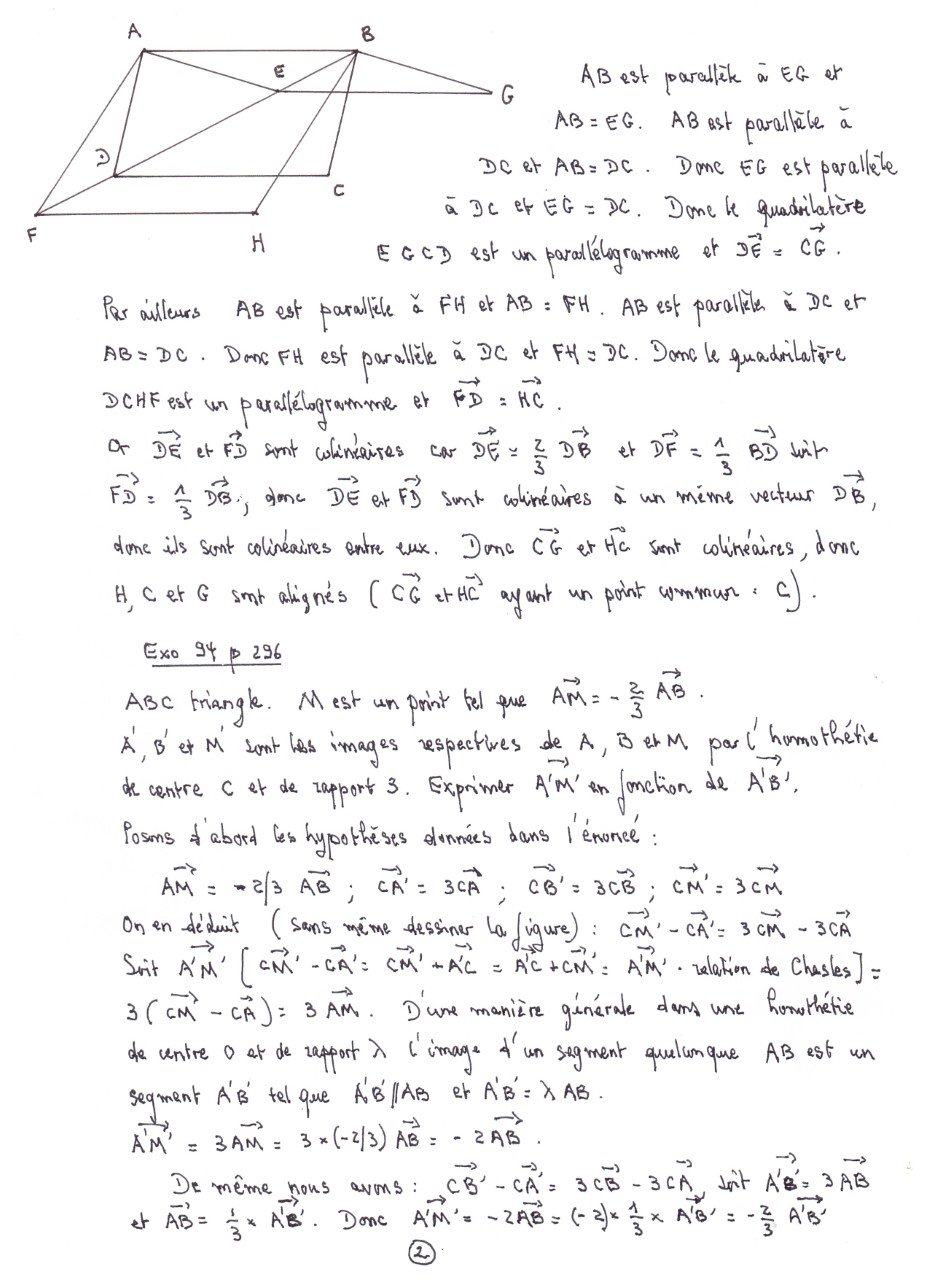 A B
E
G
D
C
F H
AB est parallèle à EG et
AB = EG. AB est parallèle à
DC et AB = DC. Donc EG est parallèle
à DC et EG = DC. Donc le quadrilatère
EGCD est un parallélogramme et $\overrightarrow{DE} = \overrightarrow{CG}$.
Par ailleurs AB est parallèle à FH et AB = FH. AB est parallèle à DC et
AB = DC. Donc FH est parallèle à DC et FH = DC. Donc le quadrilatère
DCHF est un parallélogramme et $\overrightarrow{FD} = \overrightarrow{HC}$.
Or $\overrightarrow{DE}$ et $\overrightarrow{FD}$ sont colinéaires car $\overrightarrow{DE} = \frac{2}{3} \overrightarrow{DB}$ et $\overrightarrow{DF} = \frac{1}{3} \overrightarrow{BD}$ soit
$\overrightarrow{FD} = \frac{1}{3} \overrightarrow{DB}$, donc $\overrightarrow{DE}$ et $\overrightarrow{FD}$ sont colinéaires à un même vecteur $\overrightarrow{DB}$,
donc ils sont colinéaires entre eux. Donc $\overrightarrow{CG}$ et $\overrightarrow{HC}$ sont colinéaires, donc
H, C et G sont alignés ($\overrightarrow{CG}$ et $\overrightarrow{HC}$ ayant un point commun : C).
Exo 94 p 296
ABC triangle. M est un point tel que $\overrightarrow{AM} = -\frac{2}{3} \overrightarrow{AB}$.
A', B' et M' sont les images respectives de A, B et M par l'homothétie
de centre C et de rapport 3. Exprimer $\overrightarrow{A'M'}$ en fonction de $\overrightarrow{A'B'}$.
Posons d'abord les hypothèses données dans l'énoncé :
$\overrightarrow{AM} = -2/3 \overrightarrow{AB}$ ; $\overrightarrow{CA'} = 3\overrightarrow{CA}$ ; $\overrightarrow{CB'} = 3\overrightarrow{CB}$ ; $\overrightarrow{CM'} = 3\overrightarrow{CM}$
On en déduit (sans même dessiner la figure) : $\overrightarrow{CM'} - \overrightarrow{CA'} = 3\overrightarrow{CM} - 3\overrightarrow{CA}$
Soit $\overrightarrow{A'M'}$ [$\overrightarrow{CM'} - \overrightarrow{CA'} = \overrightarrow{CM'} + \overrightarrow{A'C} = \overrightarrow{A'C} + \overrightarrow{CM'} = \overrightarrow{A'M'}$ . relation de Chasles] =
$3(\overrightarrow{CM} - \overrightarrow{CA}) = 3\overrightarrow{AM}$. D'une manière générale dans une homothétie
de centre O et de rapport λ l'image d'un segment quelconque AB est un
segment A'B' tel que A'B' // AB et A'B' = λ AB.
$\overrightarrow{A'M'} = 3\overrightarrow{AM} = 3 \times (-2/3) \overrightarrow{AB} = -2\overrightarrow{AB}$.
De même nous avons : $\overrightarrow{CB'} - \overrightarrow{CA'} = 3\overrightarrow{CB} - 3\overrightarrow{CA}$, soit $\overrightarrow{A'B'} = 3\overrightarrow{AB}$
et $\overrightarrow{AB} = \frac{1}{3} \times \overrightarrow{A'B'}$. Donc $\overrightarrow{A'M'} = -2\overrightarrow{AB} = (-2) \times \frac{1}{3} \times \overrightarrow{A'B'} = -\frac{2}{3} \overrightarrow{A'B'}$
2